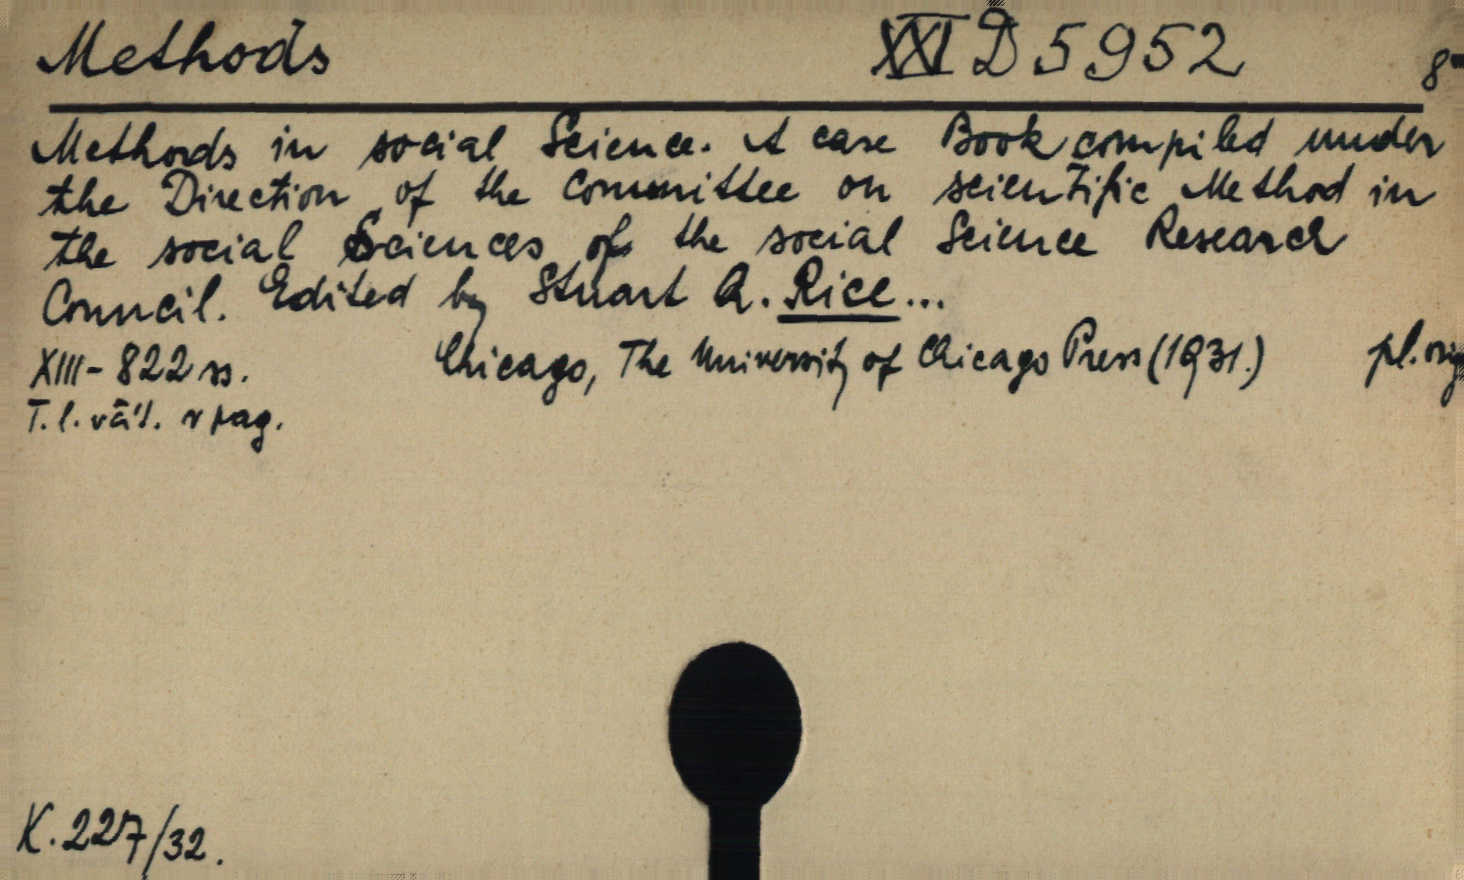 Methods XXI D 5952 8°
Methods in social Science. A case Book compiled under
the Direction of the Committee on scientific Method in
the social Sciences of the social Science Research
Council. Edited by Stuart A. Rice...
XIII-822 ss. Chicago, The University of Chicago Press (1931.) pl. orig
T. l. väť. v pag.
K. 227/32.